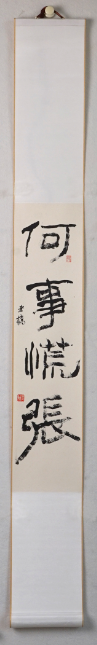 何事慌張